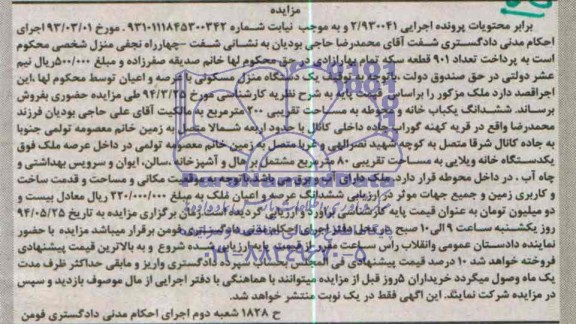 مزایده
برابر محتویات پرونده اجرایی ۲/۹۳۰۰۴۱ و به موجب نیابت شماره ۹۳۱۰۱۱۱۸۴۵۳۰۰۳۴۲ مورخ ۹۳/۰۳/۰۱ اجرای
احکام مدنی دادگستری شفت آقای محمدرضا حاجی بودیان به نشانی شفت -چهارراه نجفی منزل شخصی محکوم
است به پرداخت تعداد ۹۰۱ قطعه سکه تمام بهارآزادی در حق محکوم لها خانم صدیقه صفرزاده و مبلغ ۵۰۰/۰۰۰ریال نیم
عشر دولتی در حق صندوق دولت .باتوجه به توقیف یک دستگاه منزل مسکونی با عرصه و اعیان توسط محکوم لها ،این
اجراقصد دارد ملک مزکور را براساس قیمت پایه به شرح نظریه کارشناسی مورخ ۹۴/۳/۲۵ طی مزایده حضوری بفروش
برساند. ششدانگ یکباب خانه و محوطه به مساحت تقریبی ۳۰۰ مترمربع به مالکیت آقای علی حاجی بودیان فرزند
محمدرضا واقع در قریه کهنه گوراب جاده داخلی کانال با حدود اربعه شمالا متصل به زمین خانم معصومه تولمی جنوبا
به جاده کانال شرقا متصل به کوچه شهید نصراللهی و غربا متصل به زمین خانم معصومه تولمی در داخل عرصه ملک فوق
یکدستگاه خانه ویلایی به مساحت تقریبی ۸۰ مترمربع مشتمل بر هال و آشپزخانه ،سالن، ایوان و سرویس بهداشتی و
چاه آب ، در داخل محوطه قرار دارد. ملک دارای آب و برق می باشد باتوجه به موقعیت مکانی و مساحت و قدمت ساخت
و کاربری زمین و جمیع جهات موثر در ارزیابی ششدانگ عرصه و اعیان ملک به مبلغ ۲۲۰/۰۰۰/۰۰۰ ریال معادل بیست و
دو میلیون تومان به عنوان قیمت پایه کارشناسی برآورد و ارزیابی گردیده است زمان برگزاری مزایده به تاریخ ۹۴/۰۵/۲۵
روز یکشنبه ساعت ۹ الی ۱۰ صبح در محل دفتر اجرای احکام مدنی دادگستری فومن برقرار میباشد مزایده با حضور
نماینده دادستان عمومی وانقلاب رأس ساعت مقرر از قیمت پایه ارزیابی شده شروع و به بالاترین قیمت پیشنهادی
فروخته خواهد شد ۱۰ درصد قیمت پیشنهادی فی المجلس بحساب سپرده دادگستری واریز و مابقی حداکثر ظرف مدت
یک ماه وصول میگردد خریداران ۵روز قبل از مزایده میتوانند با هماهنگی با دفتر اجرایی از مال موصوف بازدید و سپس
در مزایده شرکت نمایند. این آگهی فقط در یک نوبت منتشر خواهد شد.
ح ۱۸۲۸ شعبه دوم اجرای احکام مدنی دادگستری فومن